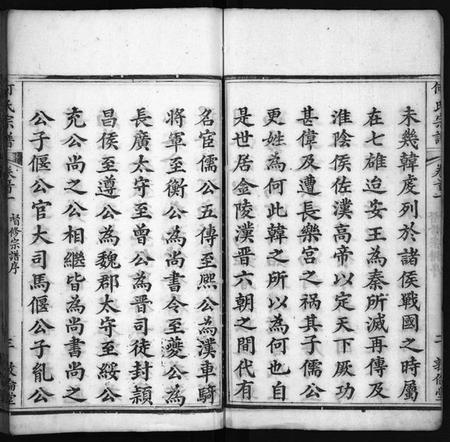 未幾韓虔列於諸侯戰國之時屬
在七雄迨安王為秦所滅再傳及
淮陰侯佐漢高帝以定天下厥功
甚偉及遭長樂宫之禍其子儒公
更姓為何此韓之所以為何也自
是世居金陵漢晉六朝之間代有
名宦儒公五傳至熈公為漢車騎
將軍至衡公為尚書令至夔公為
長廣太守至曾公為晉司徒封潁
昌侯至遵公為魏郡太守至綏公
充公尚之公相繼皆為尚書尚之
公子偃公官大司馬偃公子胤公
何氏宗譜
卷首
督修宗譜序
三
敦倫堂
何氏宗譜
卷首
二
敦倫堂